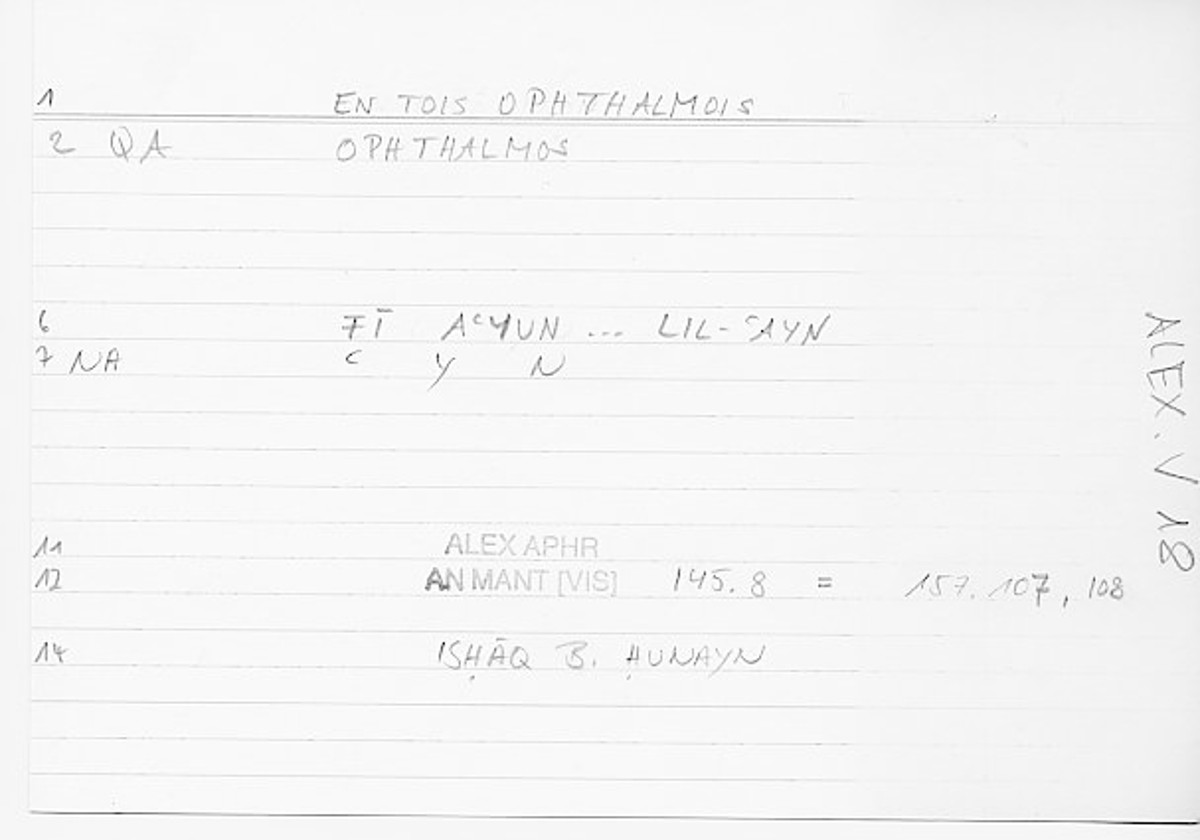 1 EN TOIS OPHTHALMOIS
2 QA OPHTHALMOS
6 FĪ AʿYUN ... LIL-ʿAYN
7 NA ʿ Y N
11 ALEX APHR
12 AN MANT [VIS] 145.8 = 157.107, 108
14 ISḤĀQ B. ḤUNAYN
ALEX. V 18